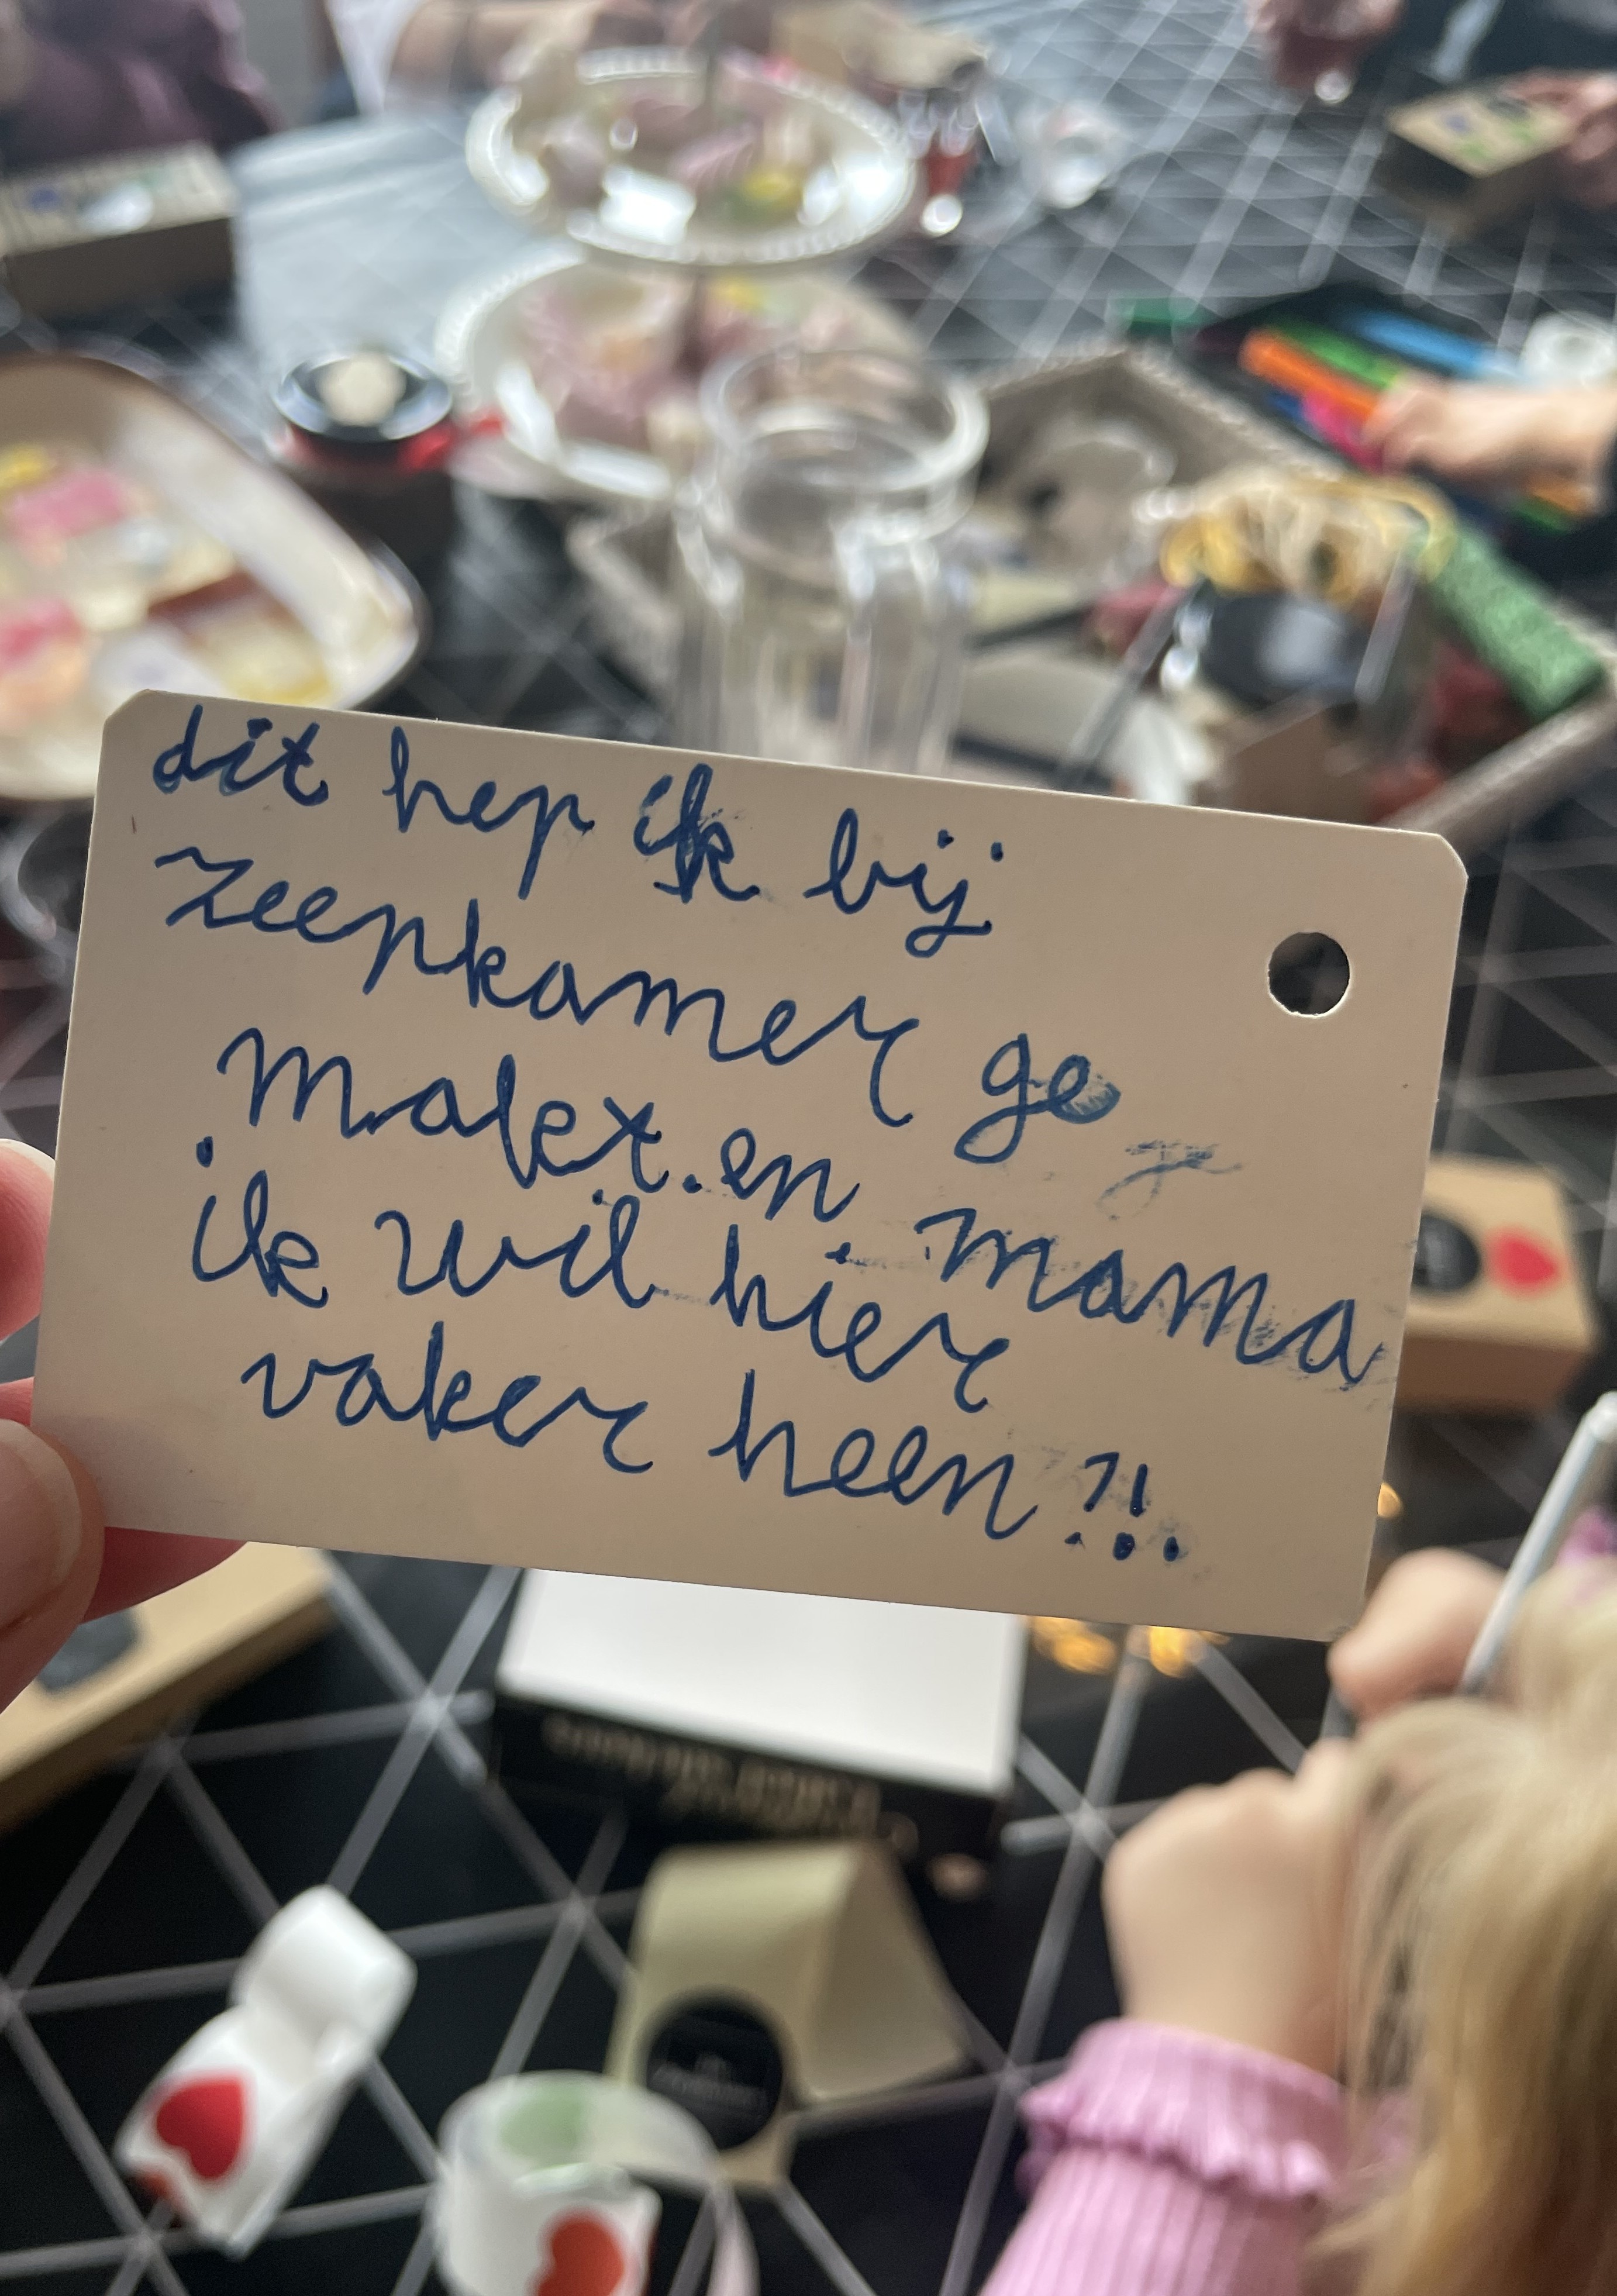 dit hep ik bij
zeepkamer ge
maket. en mama
ik wil hier
vaker heen?!.